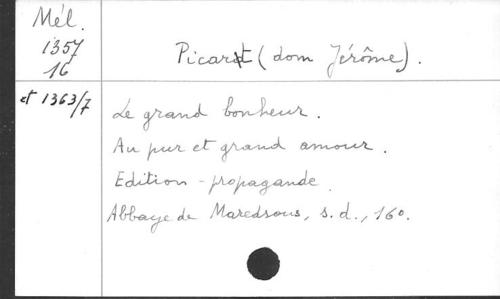 Mél.
1357
16
et 1363/7
Picard (dom Jérôme).
Le grand bonheur.
Au pur et grand amour.
Edition - propagande.
Abbaye de Maredsous, s.d., 16°.